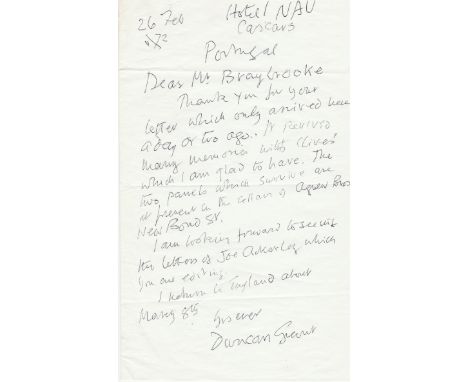 26 Feb
Hotel NAU
'72
Cascais
Portugal
Dear Mr Braybrooke
Thank you for your
letter which only arrived here
a day or two ago. It revived
many memories with Clives'
which I am glad to have. The
two panels which survive are
at present in the cellars of Agnew Bros
New Bond St.
I am looking forward to seeing
the letters of Joe Ackerley which
you are editing.
I return to England about
March 8th
Yrs ever
Duncan Grant